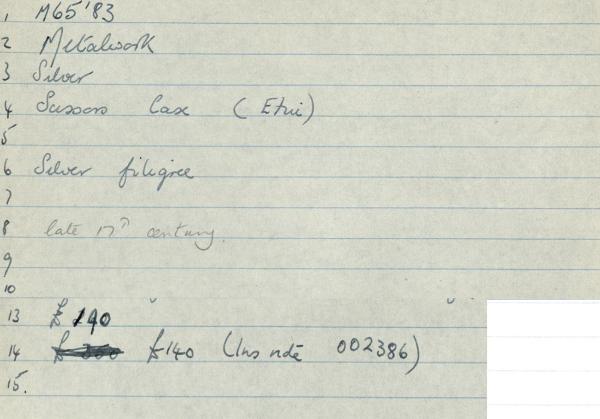 1 M65'83
2 Metalwork
3 Silver
4 Scissors Case (Etui)
5
6 Silver filigree
7
8 late 17th century.
9
10
13 £190
14 £140 (Ins note 002386)
15.